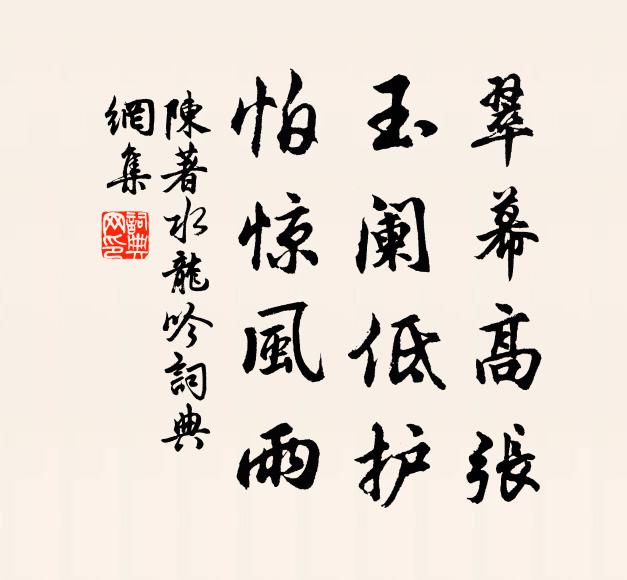 翠幕高張
玉阑低护
怕惊風雨
陳著水龍吟詞典
網集
詞典网印